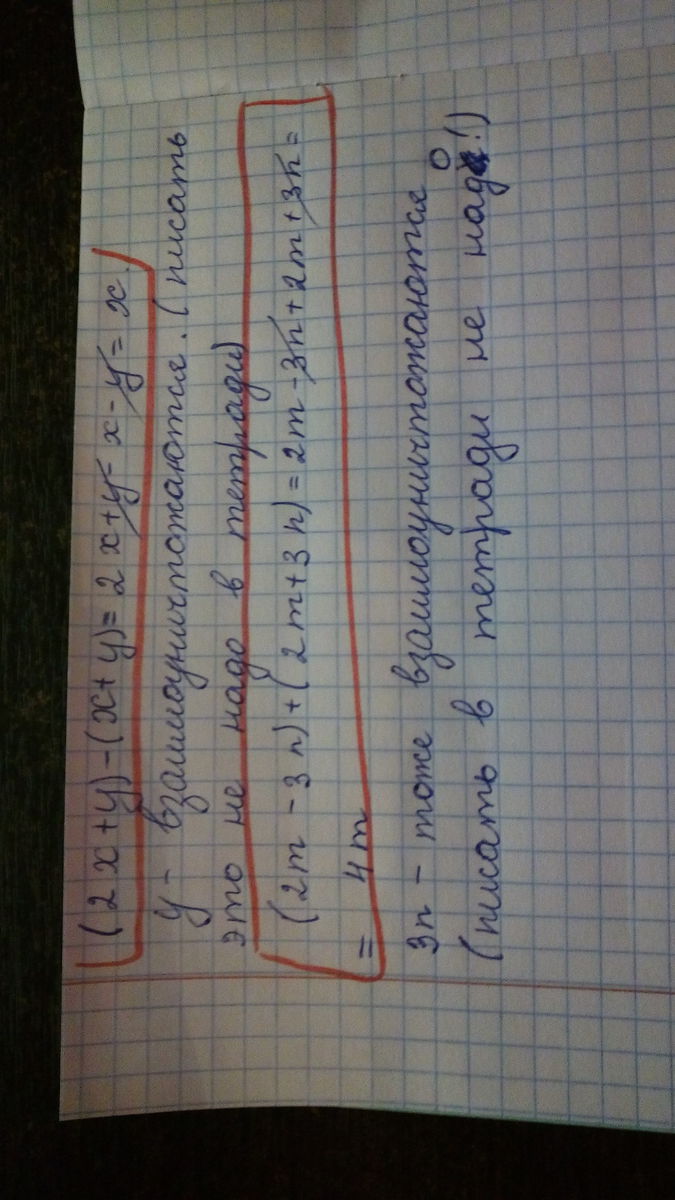 (2x+y)-(x+y)=2x+y-x-y=x.
y- взаимоуничтожаются. (писать
это не надо в тетради)
(2m-3n)+(2m+3n)=2m-3n+2m+3n=
= 4m
3n - тоже взаимоуничтожаются
(писать в тетради не надо!)